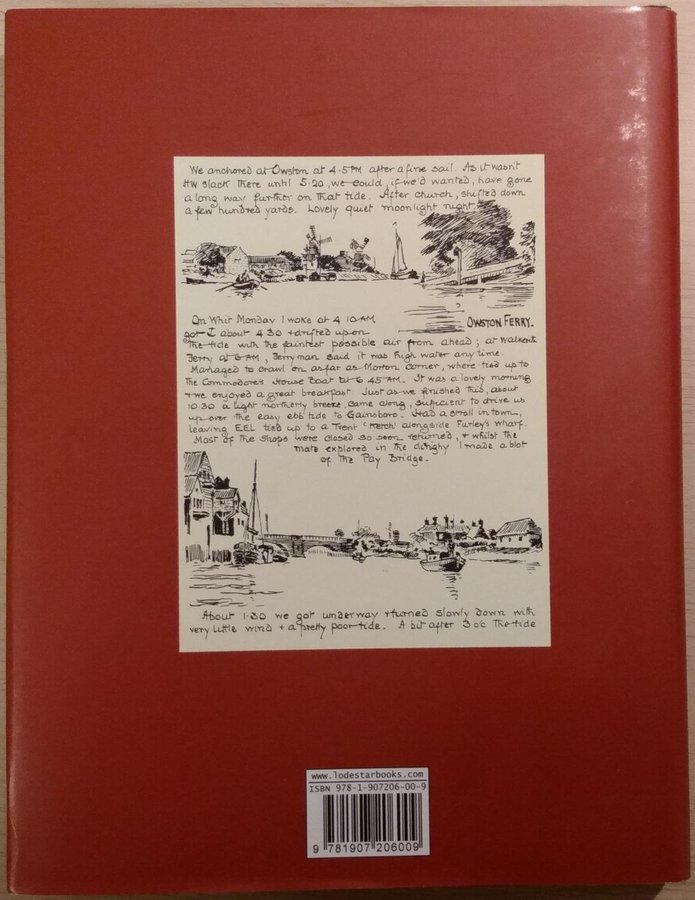 We anchored at Owston at 4·5 PM after a fine sail. As it wasn't
HW slack there until 5·20, we could, if we'd wanted, have gone
a long way further on that tide. After church, shifted down
a few hundred yards. Lovely quiet moonlight night.
OWSTON FERRY.
On Whit Monday I woke at 4 10 AM
got I about 4 30 + drifted up on
the tide with the faintest possible air from ahead; at Walkerith
Ferry at 6 AM, Ferryman said it was high water any time.
Managed to crawl on as far as Morton Corner, where tied up to
the Commodore's House Boat till 6·45 AM. It was a lovely morning
+ we enjoyed a great breakfast. Just as we finished this, about
10·30 a light northerly breeze came along, suficient to drive us
up over the easy ebb tide to Gainsboro. Had a stroll in town,
leaving EEL tied up to a Trent 'Ketch' alongside Furley's wharf.
Most of the shops were closed so soon returned, + whilst the
mate explored in the dinghy I made a blot
of the Pay Bridge.
About 1·30 we got underway + turned slowly down with
very little wind + a pretty poor tide. A bit after 3 oc the tide
www.lodestarbooks.com
ISBN 978-1-907206-00-9
9 781907 206009